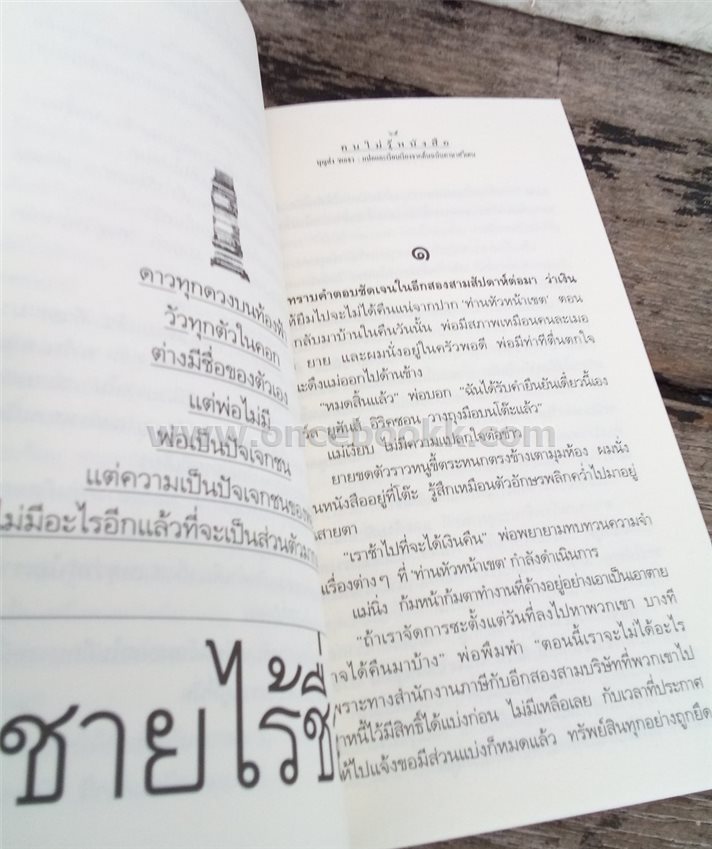 ดาวทุกดวงบนท้องฟ้า
วัวทุกตัวในคอก
ต่างมีชื่อของตัวเอง
แต่พ่อไม่มี
พ่อเป็นปัจเจกชน
แต่ความเป็นปัจเจกชนของ
ไม่มีอะไรอีกแล้วที่จะเป็นส่วนตัวมาก
ชายไร้ชื่
คนไม่รู้หนังสือ
แปลและเรียบเรียงจากต้นฉบับภาษาสวีเดน
๑
ทราบคำตอบชัดเจนในอีกสองสามสัปดาห์ต่อมา ว่าเงิน
ให้ยืมไปจะไม่ได้คืนแน่จากปาก 'ท่านหัวหน้าเขต' ตอน
กลับมาบ้านในคืนวันนั้น พ่อมีสภาพเหมือนคนละเมอ
ยาย และผมนั่งอยู่ในครัวพอดี พ่อมีท่าทีตื่นตกใจ
ะดึงแม่ออกไปด้านข้าง
"หมดสิ้นแล้ว" พ่อบอก "ฉันได้รับคำยืนยันเดี๋ยวนี้เอง
ยูฮันส์ อีริคซอน วางถุงมือบนโต๊ะแล้ว"
แม่เงียบ ไม่มีความแปลกใจต่อข่าว
ยายขดตัวราวหนูขี้ตระหนกตรงข้างเตามุมห้อง ผมนั่ง
นหนังสืออยู่ที่โต๊ะ รู้สึกเหมือนตัวอักษรพลิกคว่ำไปมาอยู่
นสายตา
"เราช้าไปที่จะได้เงินคืน" พ่อพยายามทบทวนความจำ
เรื่องต่างๆ ที่ 'ท่านหัวหน้าเขต' กำลังดำเนินการ
แม่นิ่ง ก้มหน้าก้มตาทำงานที่ค้างอยู่อย่างเอาเป็นเอาตาย
"ถ้าเราจัดการซะตั้งแต่วันที่ลงไปหาพวกเขา บางที
าจได้คืนมาบ้าง" พ่อพึมพำ "ตอนนี้เราจะไม่ได้อะไร
พราะทางสำนักงานภาษีกับอีกสองสามบริษัทที่พวกเขาไป
าหนี้ไว้มีสิทธิ์ได้แบ่งก่อน ไม่มีเหลือเลย กับเวลาที่ประกาศ
ให้ไปแจ้งขอมีส่วนแบ่งก็หมดแล้ว ทรัพย์สินทุกอย่างถูกยึด
www.oncebookk.com